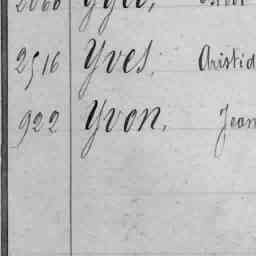 2516 Yves, Aristid
922 Yvon, Jean